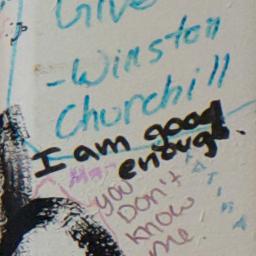 Give
-Winston
Churchill
I am good
enough.
you
Don't
know
me.